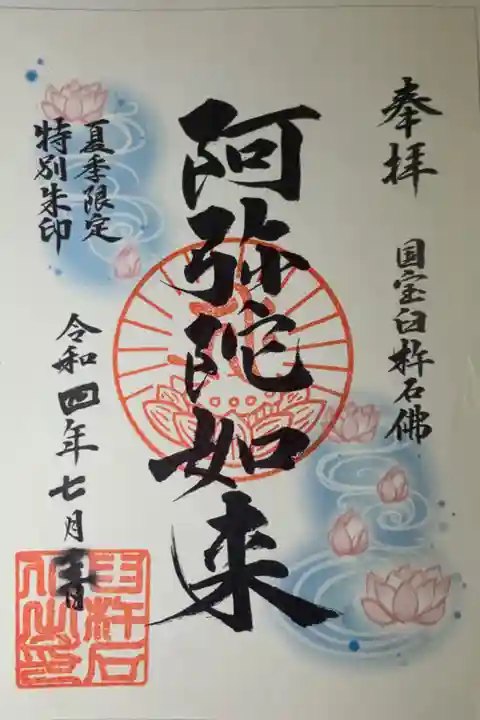 奉拝
国宝臼杵石佛
阿弥陀如来
夏季限定
特別朱印
令和四年七月
臼杵石